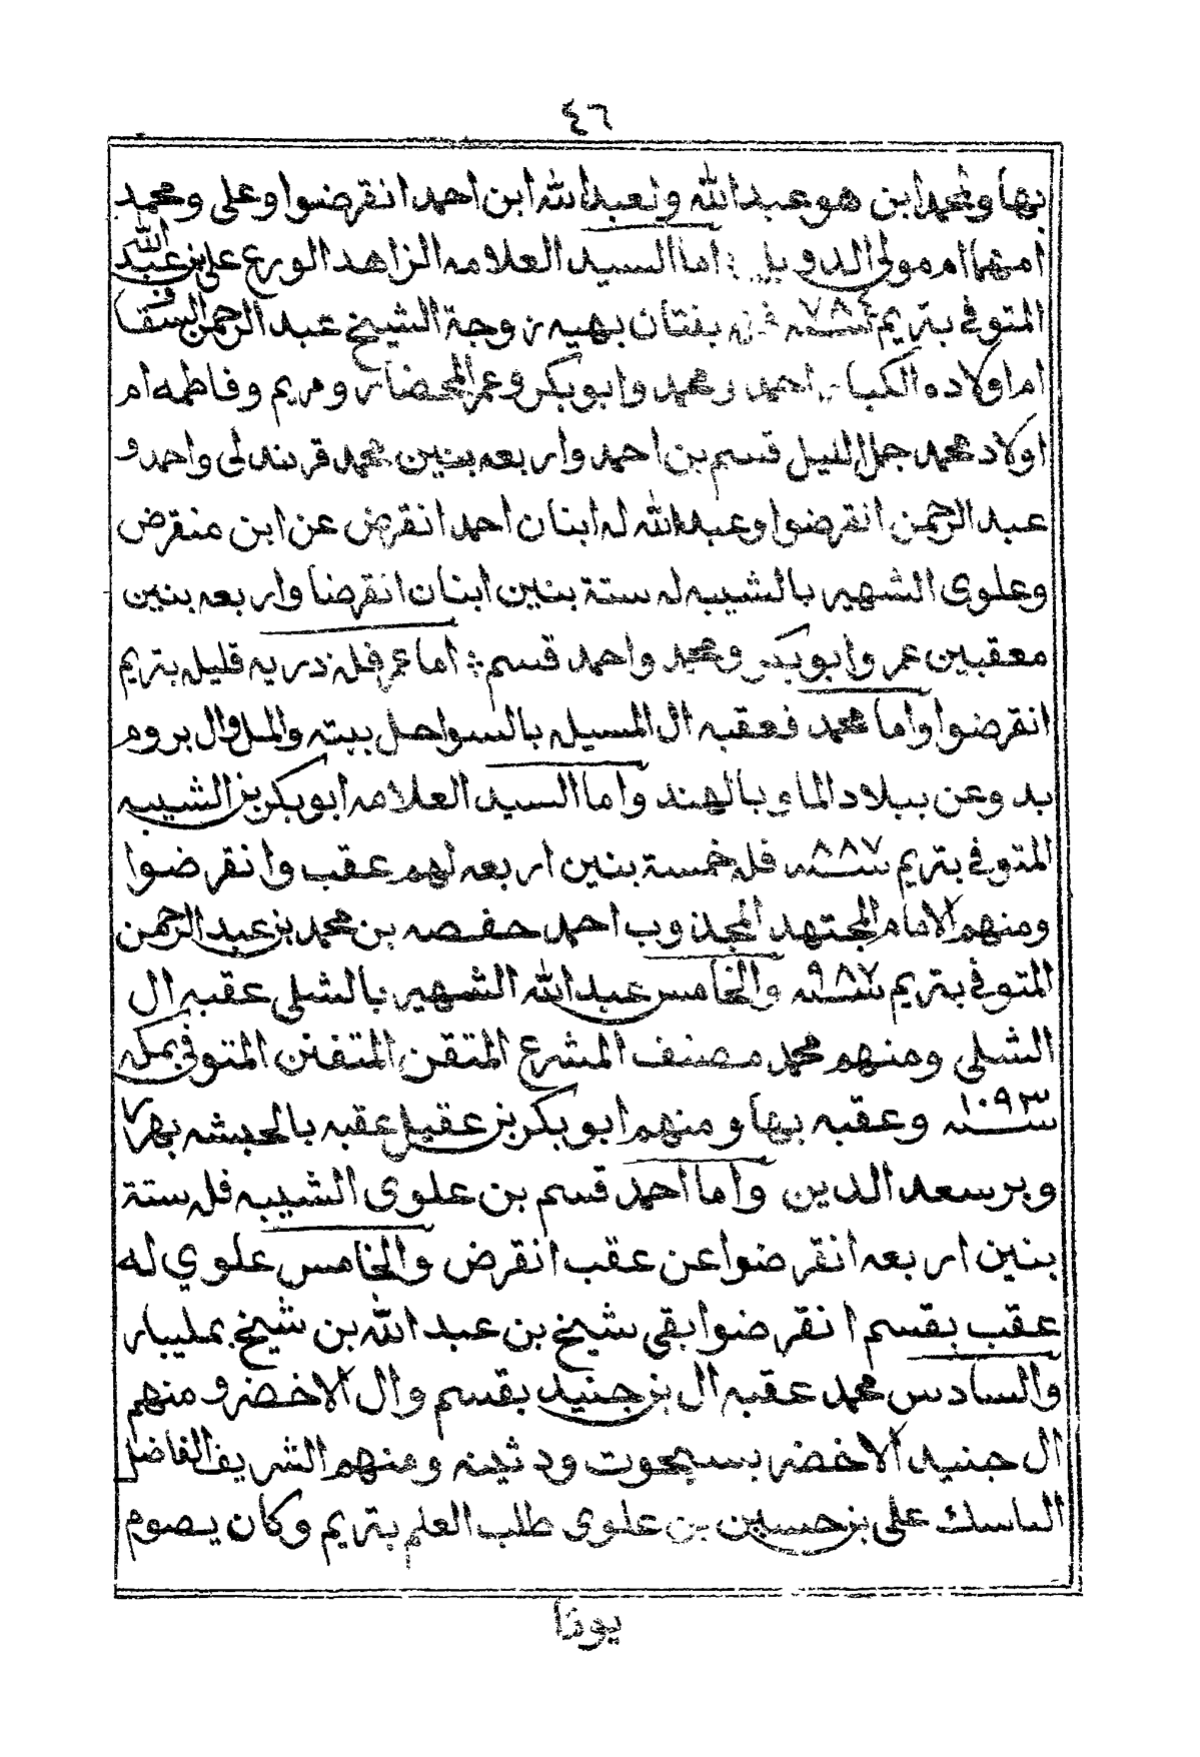 ٤٦
بها ولمحمد ابن هو عبدالله ولعبدالله ابن احمد انقرضوا وعلى ومحمد
امهما ام مولى الدويله اما السيد العلامه الزاهد الورع على بن عبدالله
المتوفى بتريم سنه ٧٨٤ بفتان بهيه زوجة الشيخ عبدالرحمن السقاف
اما اولاده الكبار احمد ومحمد وابوبكر وعمر المحضار ومريم وفاطمه ام
اولاد محمد جمل الليل قسم بن احمد واربعه بنين محمد واحمد و
عبدالرحمن انقرضوا وعبدالله له ابنان احمد انقرض عن ابن منقرض
وعلوى الشهير بالشيبه له ستة بنين ابنان انقرضا واربعه بنين
معقبين عمر وابوبكر ومحمد واحمد قسم : اما عمر فله ذريه قليله بتريم
انقرضوا واما محمد فعقبه ال المسيله بالسواحل ببته والمل وال بروم
بدوعن ببلاد الماء وبالهند واما السيد العلامه ابوبكر بن الشيبه
المتوفى بتريم سنه ٨٨٧ فله خمسة بنين اربعه لهم عقب وانقرضوا
ومنهم الامام المجتهد المجذوب احمد حفصه بن محمد بن عبدالرحمن
المتوفى بتريم سنه ٩٨٧ والخامس عبدالله الشهير بالشلى عقبه ال
الشلى ومنهم محمد مصنف المشرع المتقن المتفنن المتوفى بمكه
سنه ١٠٩٣ وعقبه بها ومنهم ابوبكر بن عقيل عقبه بالحبشه بهرر
وبرسعد الدين واما احمد قسم بن علوى الشيبه فله ستة
بنين اربعه انقرضوا عن عقب انقرض والخامس علوي له
عقب بقسم انقرضوا بقى شيخ بن عبدالله بن شيخ بمليبار
والسادس محمد عقبه ال بن جنيد بقسم وال الاخضر ومنهم
ال جنيد الاخضر بسيحوت ودثينه ومنهم الشريف الفاضل
الناسك على بن حسين بن علوى طلب العلم بتريم وكان يصوم
يوما